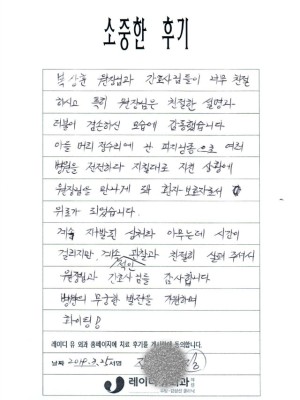 소중한 후기
원장님과 간호사님들이 너무 친절
하시고 특히 원장님은 친절한 설명과
더불어 겸손하신 모습에 감동했습니다
아들 머리 정수리에 난 피지낭종으로 여러
병원을 전전하다 지칠대로 지친 상황에
원장님을 만나게 돼 환자 보호자로서
위로가 되었습니다.
계속 재발된 상처와 아무는데 시간이
걸리지만, 관찰과 친절히 살펴 주셔서
원장님과 간호사님들 감사합니다
병원의 무궁한 발전을 기원하며
화이팅
레이디 유 외과 홈페이지에 치료 후기를 동의합니다.
날짜 2018.3.25 서명
레이디 유 외과의원